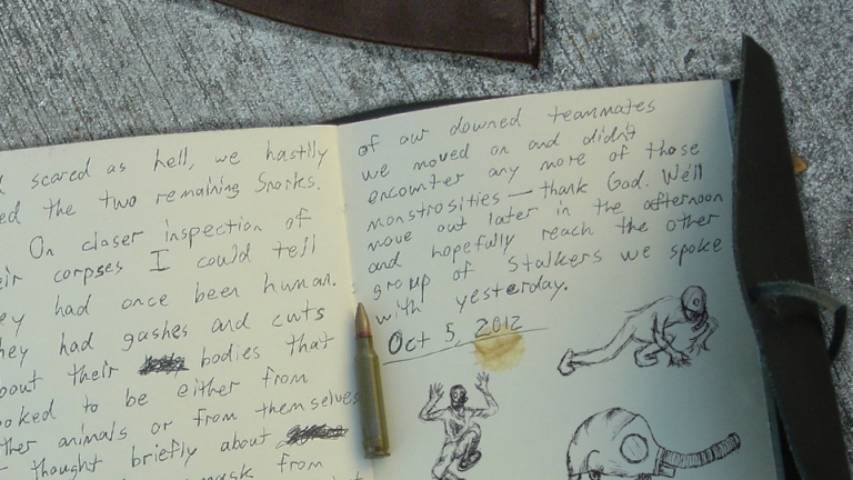 scared as hell, we hastily
the two remaining Snorks.
On closer inspection of
corpses I could tell
had once been human.
had gashes and cuts
their bodies that
to be either from
animals or from themselves
thought briefly about
mask from
of our downed teammates
we moved on and didn't
encounter any more of those
monstrosities — thank God. We'll
move out later in the afternoon
and hopefully reach the other
group of Stalkers we spoke
with yesterday.
Oct 5, 2012